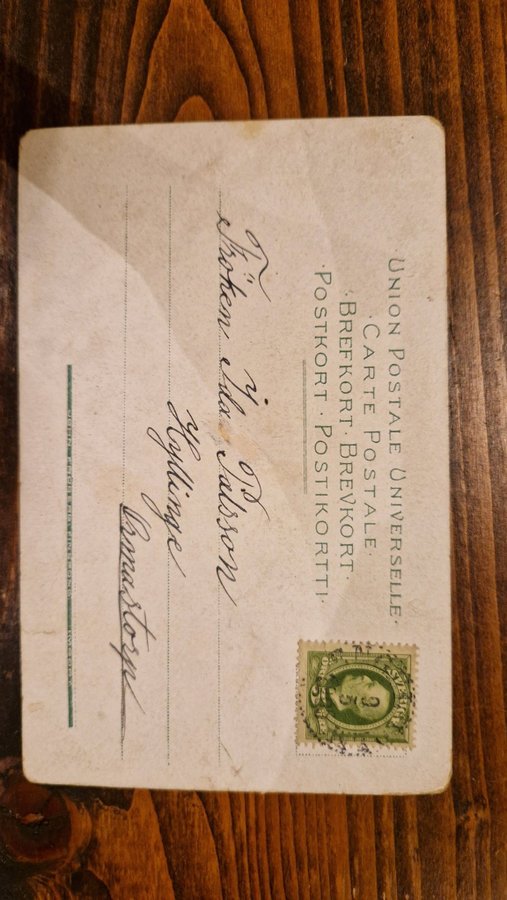 · UNION POSTALE UNIVERSELLE ·
· CARTE POSTALE ·
· BREFKORT · BREVKORT ·
· POSTKORT · POSTIKORTTI ·
Fröken Ida Pålsson
Hyllinge